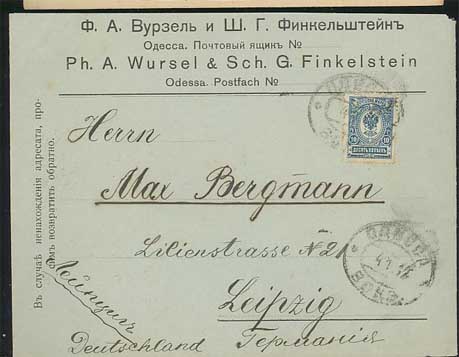 Ф. А. Вурзель и Ш. Г. Финкельштейнъ
Одесса. Почтовый ящикъ №
Ph. A. Wursel & Sch. G. Finkelstein
Odessa. Postfach №
Въ случаѣ ненахожденія адресата, про-
симъ возвратить обратно.
ОДЕССА
10 ДЕСЯТЬ КОПѢЕКЪ 10
Herrn
Max Bergmann
Lilienstrasse N 21
Leipzig
Лейпцигъ
Deutschland Германія
ОДЕССА
ВОКЗ.